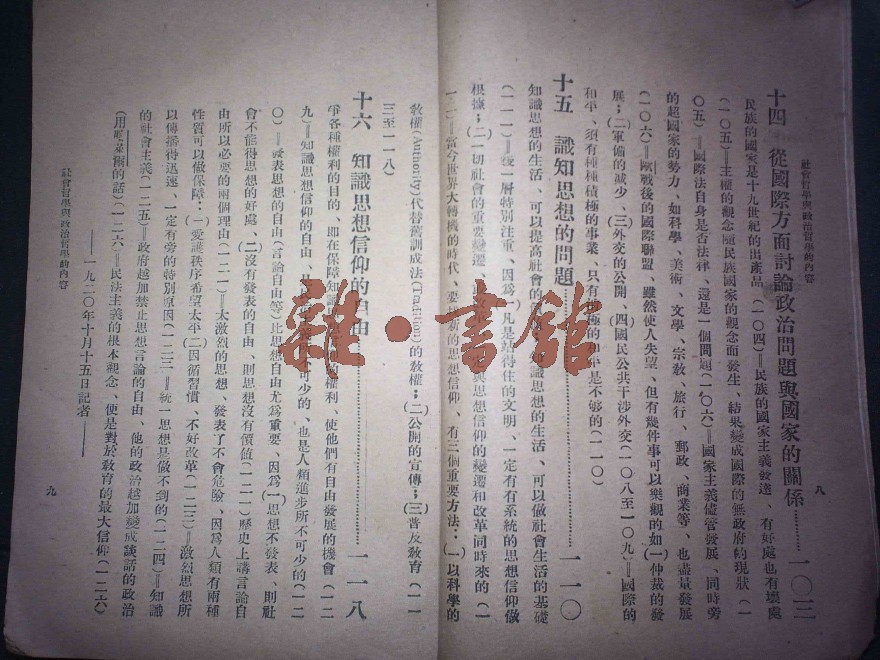 社會哲學與政治哲學的內容
八
十四 從國際方面討論政治問題與國家的關係………一〇三
民族的國家是十九世紀的出產品(一〇四)=民族的國家主義發達、有好處也有壞處
(一〇五)=主權的觀念隨民族國家的觀念而發生、結果變成國際的無政府的現狀(一
〇五)=國際法自身是否法律、還是一個問題(一〇六)=國家主義儘管發展、同時旁
的超國家的勢力、如科學、美術、文學、宗教、旅行、郵政、商業等、也盡量發展
(一〇六)=歐戰後的國際聯盟、雖然使人失望、但有幾件事可以樂觀的如(一)仲裁的發
展;(二)軍備的減少、(三)外交的公開、(四)國民公共干涉外交(一〇八至一〇九)=國際的
和平、須有種種積極的事業、只有消極的和平是不够的(一一〇)
十五 識知思想的問題………一一〇
知識思想的生活、可以提高社會的知識思想的生活、可以做社會生活的基礎
(一一一)=後一層特別注重、因爲(一)凡是站得住的文明、一定有有系統的思想信仰做
根據;(二)一切社會的重要變遷、與思想信仰的變遷和改革同時來的(一
一二)=當今世界大轉機的時代、要新的思想信仰、有三個重要方法:(一)以科學的
教權(Authority)代替舊訓成法(Tradition)的教權;(二)公開的宣傳;(三)普及教育(一一
三至一一八)
十六 知識思想信仰的自由………一一八
爭各種權利的目的、即在保障知識的權利、使他們有自由發展的機會(一一
九)=知識思想信仰的自由、不可少的、也是人類進步所不可少的(一二
〇)=發表思想的自由(言論自由等)比思想自由尤爲重要、因爲(一)思想不發表、則社
會不能得思想的好處、(二)沒有發表的自由、則思想沒有價值(一二一)歷史上講言論自
由所以必要的兩個理由(一二一)=太激烈的思想、發表了不會危險、因爲人類有兩種
性質可以做保障:(一)愛護秩序希望太平(二)因循習慣、不好改革(一二三)=激烈思想所
以傳播得迅速、一定有旁的特別原因(一二三)=統一思想是做不到的(一二四)=知識
的社會主義(一二五)=政府越加禁止思想言論的自由、他的政治越加變成談話的政治
(用的話)(一二六)=民法主義的根本觀念、便是對於教育的最大信仰(一二六)
——一九二〇年十月十五日記者——
社會哲學與政治哲學的內容
九
雜·書館